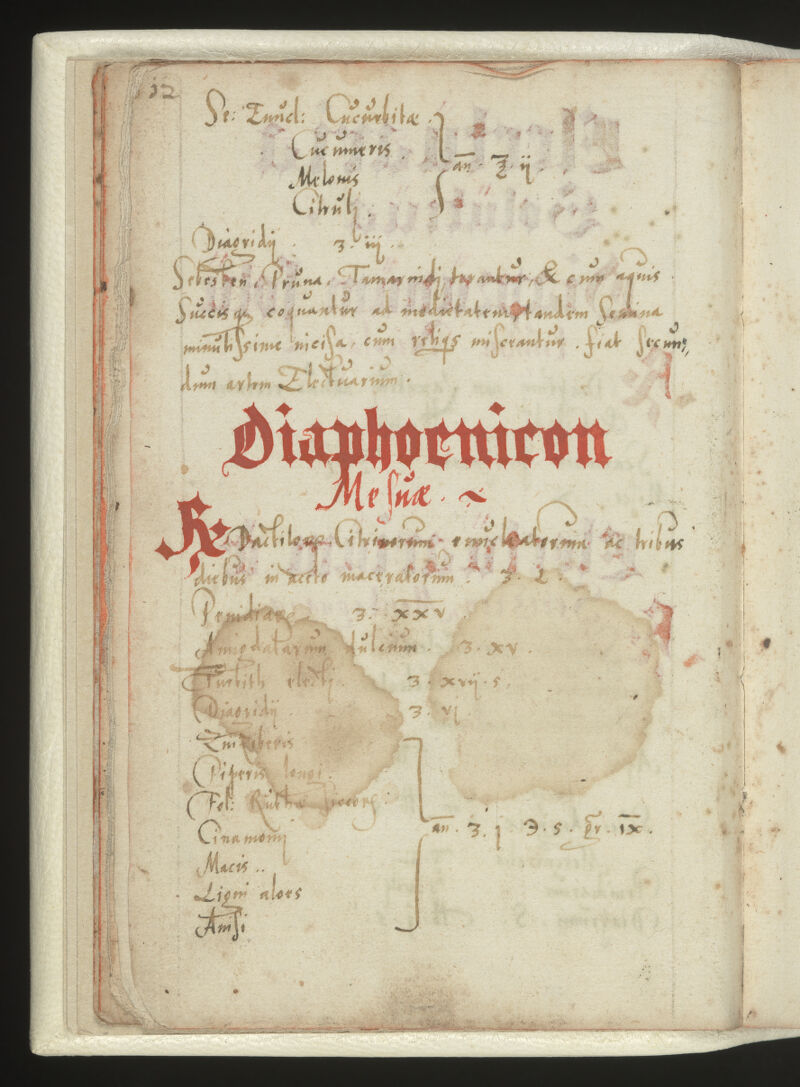 12
Se: Emud: Cucurbitæ
Cucumeris
Melonis
Citrulj
an. ʒ. ij.
Diagridij. ʒ. iij.
Sebesten, Pruna, Tamarindj terantur, & cum aquis
Succisqꝫ coquantur ad medietatem, tandem Semina
minutissime incisa, cum reliqs miscerantur. fiat secun,,
dum artem Electuarium.
Diaphoenicon
Mesuæ. ~
℞ Dactilorꝫ Citrinorum enucleatorum ac tribus
diebus in aceto maceratorum. ʒ. L.
Penidiarꝫ ʒ. xxv
Amigdalarum dulcium. ʒ. xv.
Turbith electj. ʒ. xvij. s.
Diagridij. ʒ. vj
Zinziberis
Piperis longi.
Fol: Rutæ siccorꝫ.
Cinamomj
Macis..
Ligni aloes
Anisi
an. ʒ. j ℈. s. gr. IX.